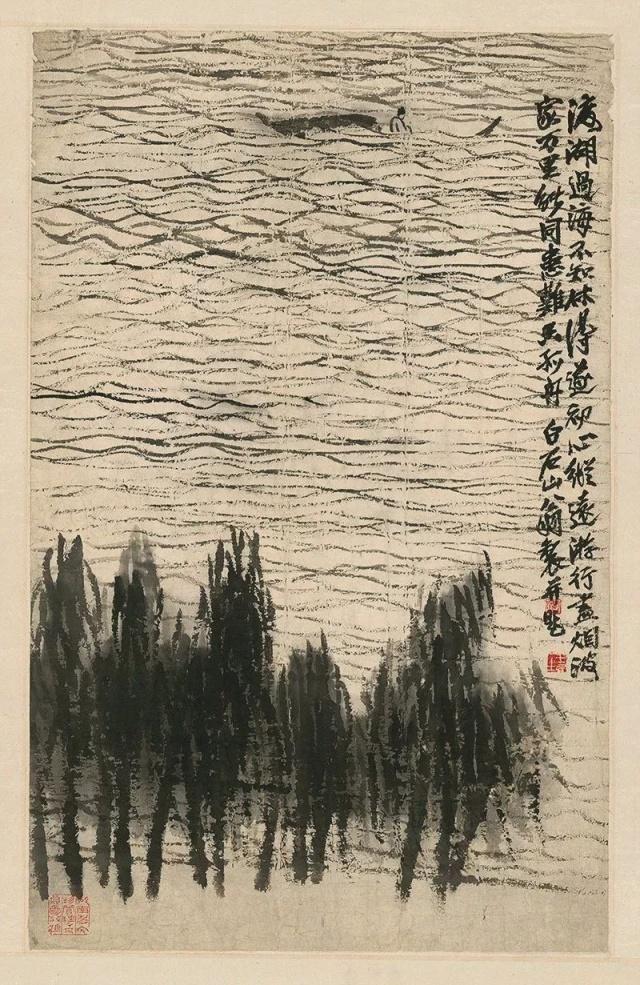 渡湖過海不知休得遂初心縱遠游行盡烟波
家万里能同患難只孤舟 白石山翁製并題